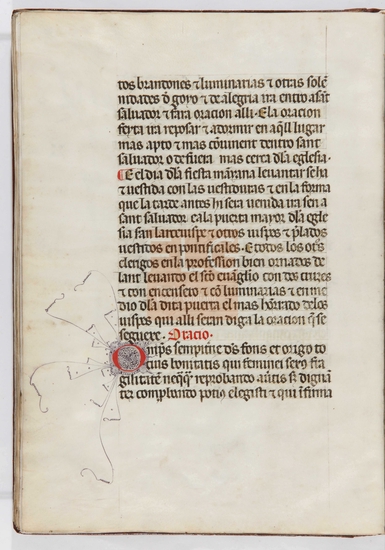 tos brandones ⁊ luminarias ⁊ otras solē
nidades d̄ goyo ⁊ de alegria ira en tro a sāt
saluador ⁊ fara oracion alli · E la oracion
feyta ira reposar ⁊ a dormir en aq̄ll lugar
mas apto ⁊ mas cōuinent dentro sant
saluador o de fuera mas cerca dla eglesia ·
E el dia dla fiesta manyana leuantar se ha
⁊ vestida con las vestiduras ⁊ en la forma
que la tarde antes hi sera venida ira sen a
sant saluador e a la puerta mayor dla egle
sia san larceuispe ⁊ otros vispes ⁊ plados
vestitos en pontificales · E todos los otͬs
clerigos en la profession bien ornados de
lant leuando el sco euāglio con dos cirres
⁊ con encensero ⁊ cō luminarias ⁊ en me
dio dla dita puerta el mas hōrrado delos
vispes qui alli seran diga la oracion q̄ se
seguexe · Oracio ·
Omps sempitne ds fons et origo to
cius bonitatis qui feminei sexus fra
gilitatē neq̄q̄ reprobando auertis s̄ digna
ter comprobando potius elegisti ⁊ qui infirma